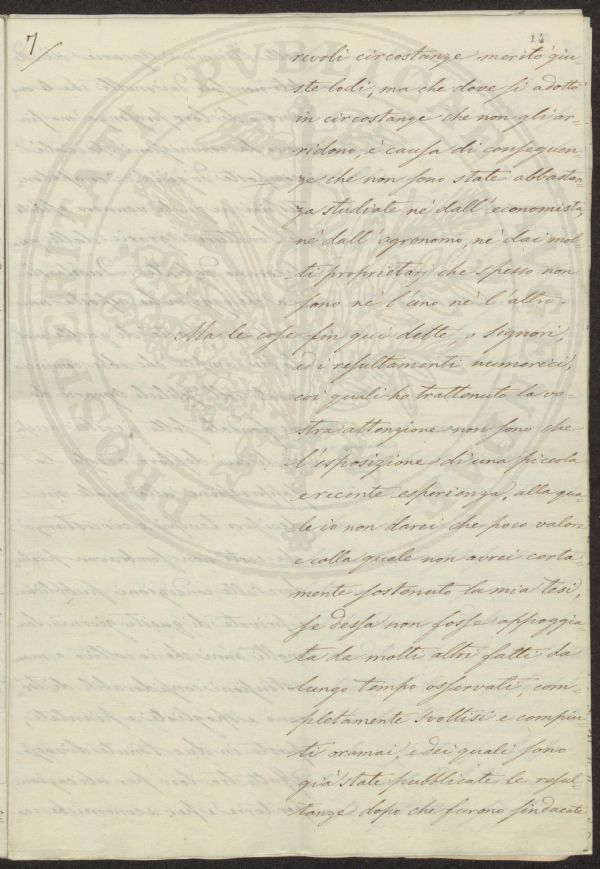 7/
14
revoli circostanze meritò giu=
ste lodi, ma che dove si adottò
in circostanze che non gli ar=
ridono, è causa di conseguen=
ze che non sono state abbastan=
za studiate nè dall'economista,
nè dall'agronomo, nè dai mol=
ti proprietarj che spesso non
sono nè l'uno nè l'altro.
Ma le cose fin quì dette, o Signori,
ed i resultamenti numerici,
coi quali ho trattenuto la vo=
stra attenzione non sono che
l'esposizione di una piccola
e recente esperienza, alla qua=
le io non darei che poco valore
e colla quale non avrei certa=
mente sostenuto la mia tesi,
se dessa non fosse appoggia=
ta da molti altri fatti da
lungo tempo osservati, com=
pletamente svoltisi e compiu=
ti oramai, e dei quali sono
già state pubblicate le resul=
tanze dopo che furono sindacate
PROSPERITATI PVBLICAE